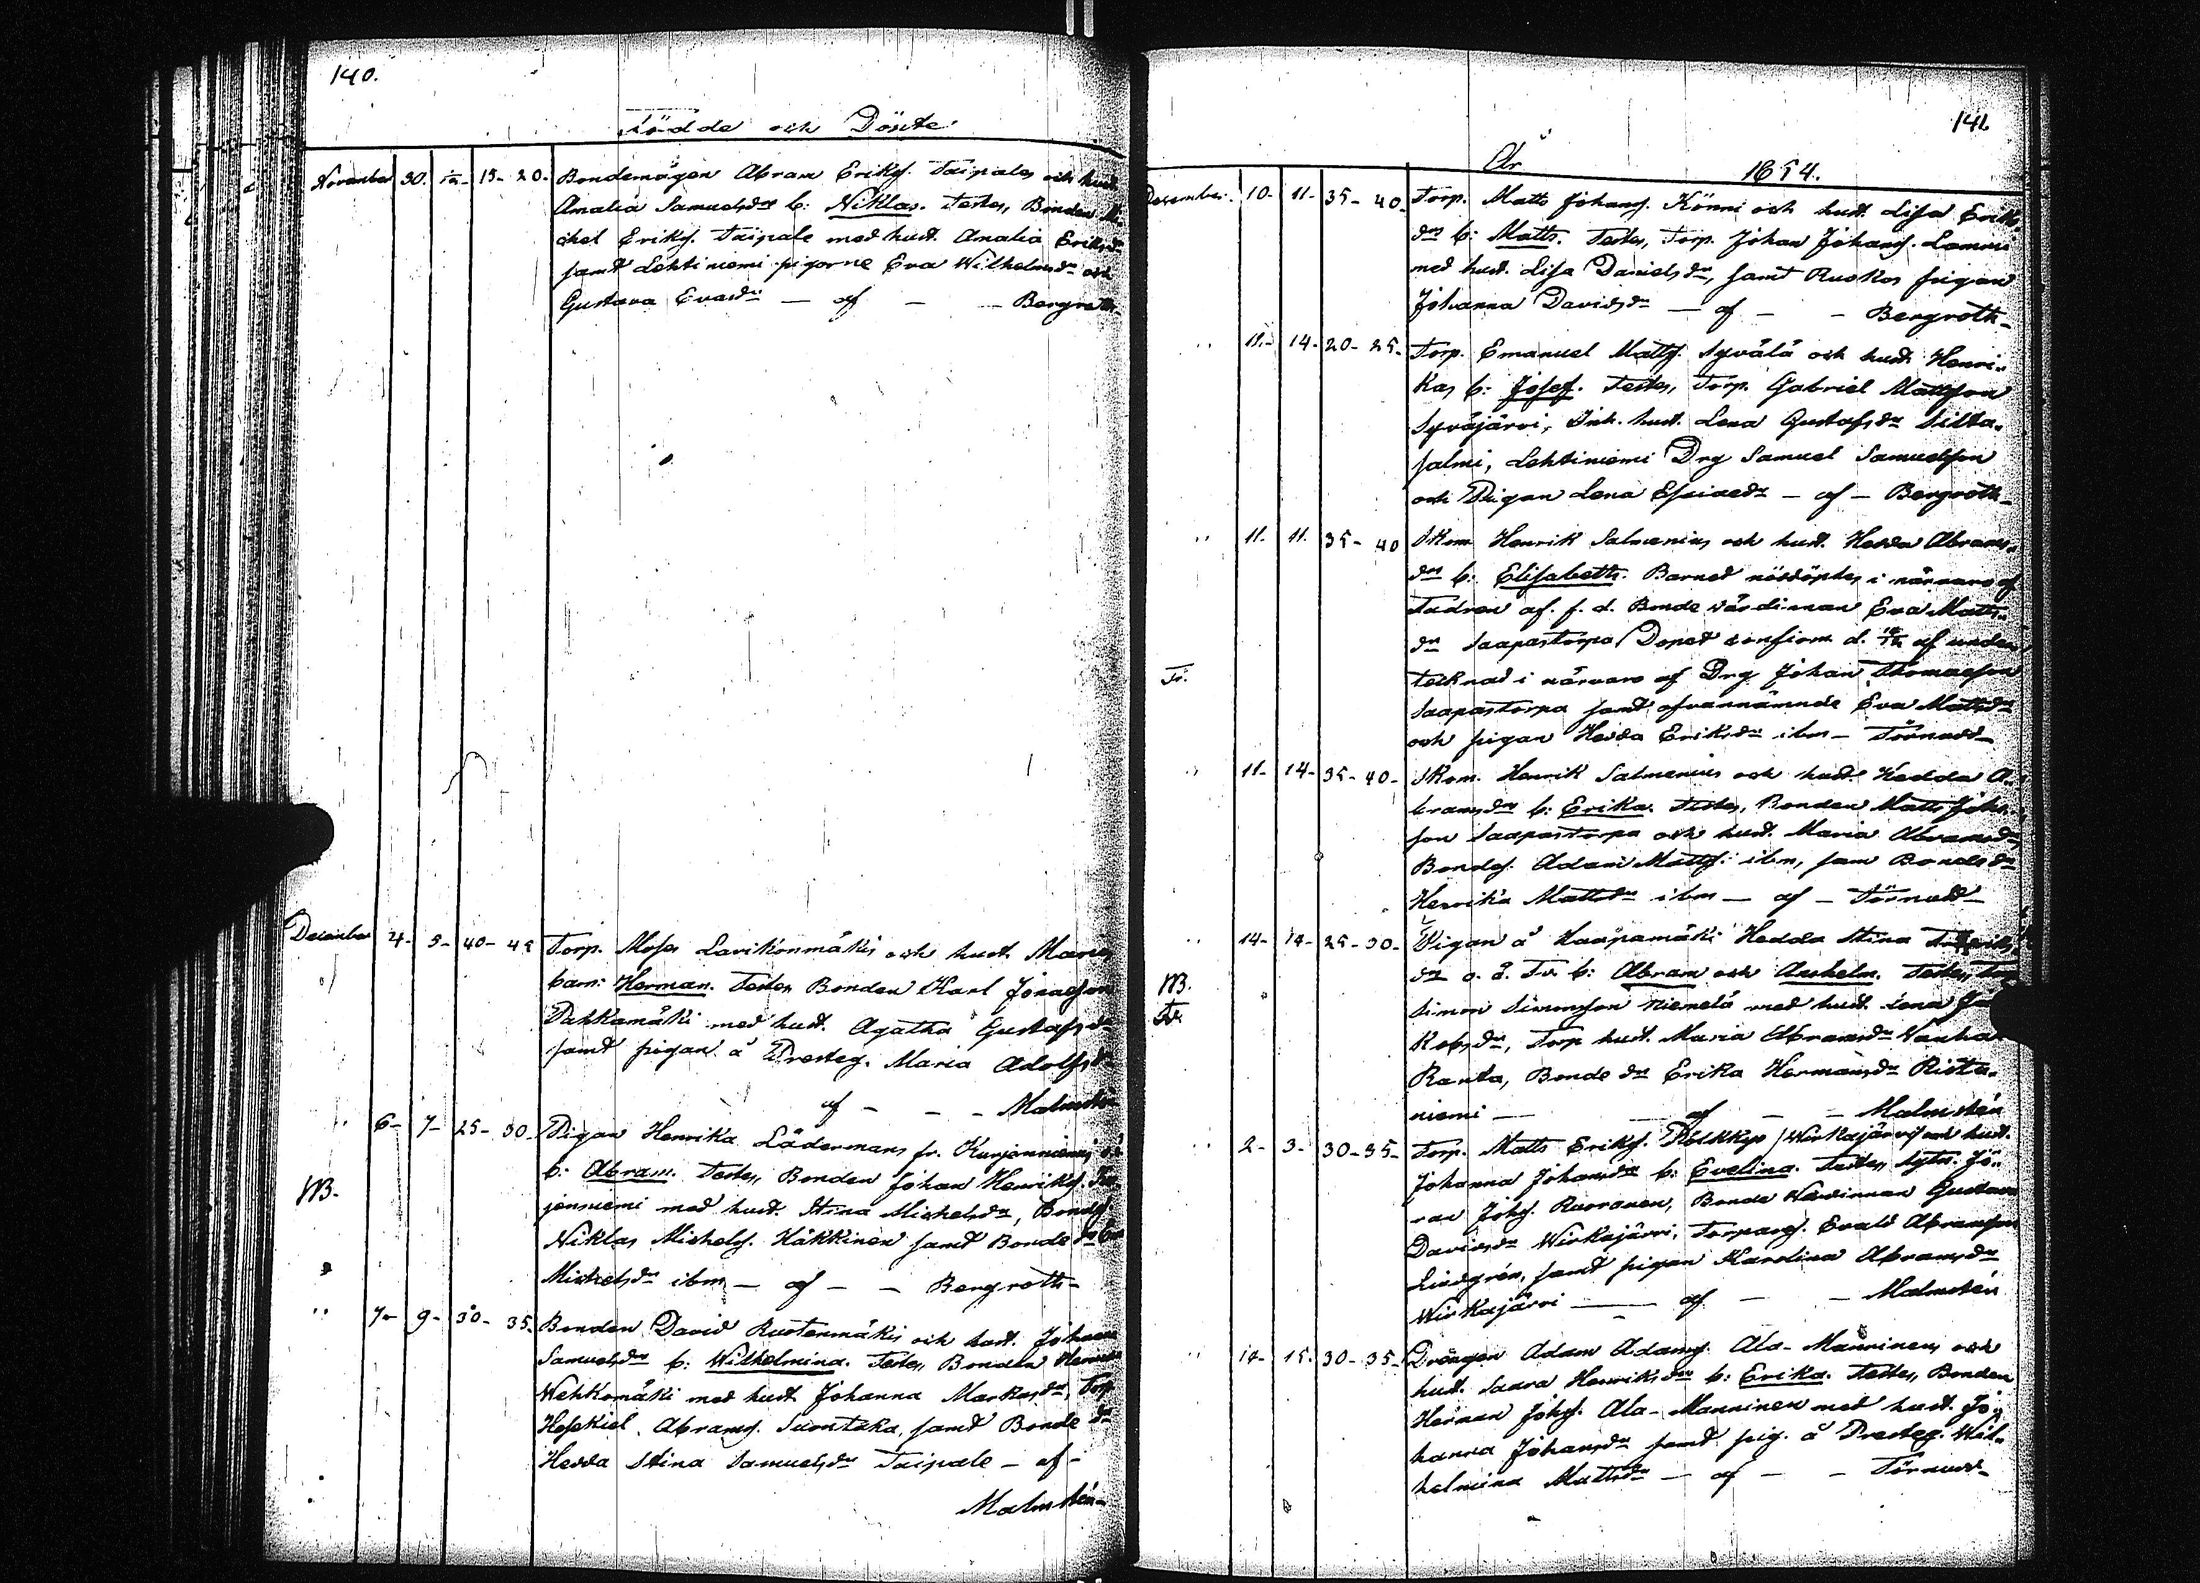 140.
Födde och Döpte
November 30. 1/12- 15- 20- Bondemågen Abram Eriks. Taipales och hust.
Amalia Samuelsdrs b: Niklas. Testes, Bonden Mi-
chel Eriks. Taipale med hust. Amalia Eriksdr
samt Lehtiniemi pigorne Eva Wilhelmsdr och
Gustava Evasdr — af — — Bergroth-
December 4- 5- 40- 45 Torp. Moses Lavikonmäkis och hust. Marias
barn: Herman. Testes Bonden Karl Jonasson
Pukkamäki med hust. Agatha Gustafsdr
samt pigan å Presteg. Maria Adolfsdr
af - - - Malmstén
" 6- 7- 25- 30- Pigan Henrika Lädermans fr. Kurjenniemi
NB. b: Abram. Testes, Bonden Johan Henriks. Kur-
jenniemi med hust. Stina Michelsdr, Bondes.
Niklas Michels. Häkkinen samt Bondedr
Michelsdr ibm — af — — Bergroth-
" 7- 9- 30- 35. Bonden David Rustenmäkis och hust. Johanna
Samuelsdrs b: Wilhelmina. Testes, Bonden
Wehkomäki med hust. Johanna Markusdr, Torp.
Hesekiel Abrams. Suontaka, samt Bonde dr
Hedda Stina Samuelsdr Taipale — af -
Malmstén-
141.
År 1854.
December. 10- 11- 35- 40- Torp. Matts Johans. Könni och hust. Lisa Eriks-
drs b: Matts. Testes, Torp. Johan Johans. Lammi
med hust. Lisa Danielsdr, samt Ruokos pigan
Johanna Davidsdr — af - - Bergroth-
" 11.- 14- 20- 25- Torp. Emanuel Matts. Syvälä och hust. Henri-
kas b: Josef. Testes, Torp. Gabriel Mattsson
Syväjärvi, Inh. hust. Lena Gustafsdr Silta-
salmi, Lehtiniemi Drg Samuel Samuelsson
och Pigan Lena Esaiædr — af — Bergroth-
" 11- 11. 35- 40 Skom. Henrik Salmenius och hust. Hedda Abrams-
drs b: Elisabeth. Barnet nöddöptes i närvaro af
Fadren af f. d. Bonde värdinnan Eva Matts-
dr Saapastorpa Dopet confirm. d. af under-
Tv. tecknad i närvaro af Drg Johan Thomasson
Saapastorpa samt ofvannämnde Eva Mattsdr
och pigan Hedda Eriksdr ibm — Törnudd-
" 11- 14- 35- 40- Skom. Henrik Salmenius och hust. Hedda A-
bramsdrs b: Erika. Testes, Bonden Matts Johs-
son Saapastorpa och hust. Maria Abramsdr,
Bondes. Adam Matts. ibm, sam Bondedr
Henrika Mattsdr ibm — af — Törnudd-
" 14- 14- 25- 30- Pigan å Haapamäki Hedda Stina
NB. dr o. ä. Tv. b: Abram och Anshelm. Testes, Torp.
Tv. Simon Simonsson Niemelä med hust. Lena Ja-
kobsdr, Torp hust. Maria Abramsdr Wanha-
Ranta, Bonde dr Erika Hermansdr Rista-
niemi — af — — Malmstén
" 2- 3- 30- 35- Torp. Matts Eriks. Pölkkys / Wirkajärvi och hust.
Johanna Johansdrs b: Evelina. Testes, Sytn. Jö-
ran Johs. Ruoranen, Bonde Wärdinnan Gustava
Davidsdr Wirkajärvi, Torpares. Evald Abramsson
Lindgrén, samt pigan Karolina Abramsdr
Wirkajärvi — af — — Malmstén
" 14- 15. 30- 35- Drängen Adam Adams. Ala-Manninens och
hust. Saara Henriksdrs b: Erika. Testes, Bonden
Herman Johs. Ala-Manninen med hust. Jo-
hanna Johansdr samt pig. å Presteg. Wil-
helmina Mattsdr — af — — Törnudd-